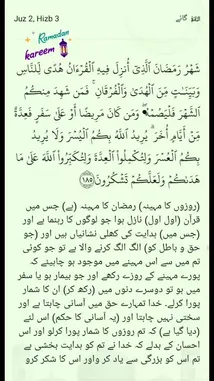 Juz 2, Hizb 3
Ramadan
kareem
شَهْرُ رَمَضَانَ ٱلَّذِىٓ أُنزِلَ فِيهِ ٱلْقُرْءَانُ هُدًى لِّلنَّاسِ
وَبَيِّنَـٰتٍ مِّنَ ٱلْهُدَىٰ وَٱلْفُرْقَانِ ۚ فَمَن شَهِدَ مِنكُمُ
ٱلشَّهْرَ فَلْيَصُمْهُ ۖ وَمَن كَانَ مَرِيضًا أَوْ عَلَىٰ سَفَرٍ فَعِدَّةٌ
مِّنْ أَيَّامٍ أُخَرَ ۗ يُرِيدُ ٱللَّهُ بِكُمُ ٱلْيُسْرَ وَلَا يُرِيدُ
بِكُمُ ٱلْعُسْرَ وَلِتُكْمِلُوا۟ ٱلْعِدَّةَ وَلِتُكَبِّرُوا۟ ٱللَّهَ عَلَىٰ مَا
هَدَىٰكُمْ وَلَعَلَّكُمْ تَشْكُرُونَ ١٨٥
(روزوں کا مہینہ) رمضان کا مہینہ (ہے) جس میں
قرآن (اول اول) نازل ہوا جو لوگوں کا رہنما ہے اور
(جس میں) ہدایت کی کھلی نشانیاں ہیں اور (جو
حق و باطل کو) الگ الگ کرنے والا ہے تو جو کوئی
تم میں سے اس مہینے میں موجود ہو چاہیئے کہ
پورے مہینے کے روزے رکھے اور جو بیمار ہو یا سفر
میں ہو تو دوسرے دنوں میں (رکھ کر) ان کا شمار
پورا کرلے۔ خدا تمہارے حق میں آسانی چاہتا ہے اور
سختی نہیں چاہتا اور (یہ آسانی کا حکم) اس لئے
(دیا گیا ہے) کہ تم روزوں کا شمار پورا کرلو اور اس
احسان کے بدلے کہ خدا نے تم کو ہدایت بخشی ہے
تم اس کو بزرگی سے یاد کر واور اس کا شکر کرو